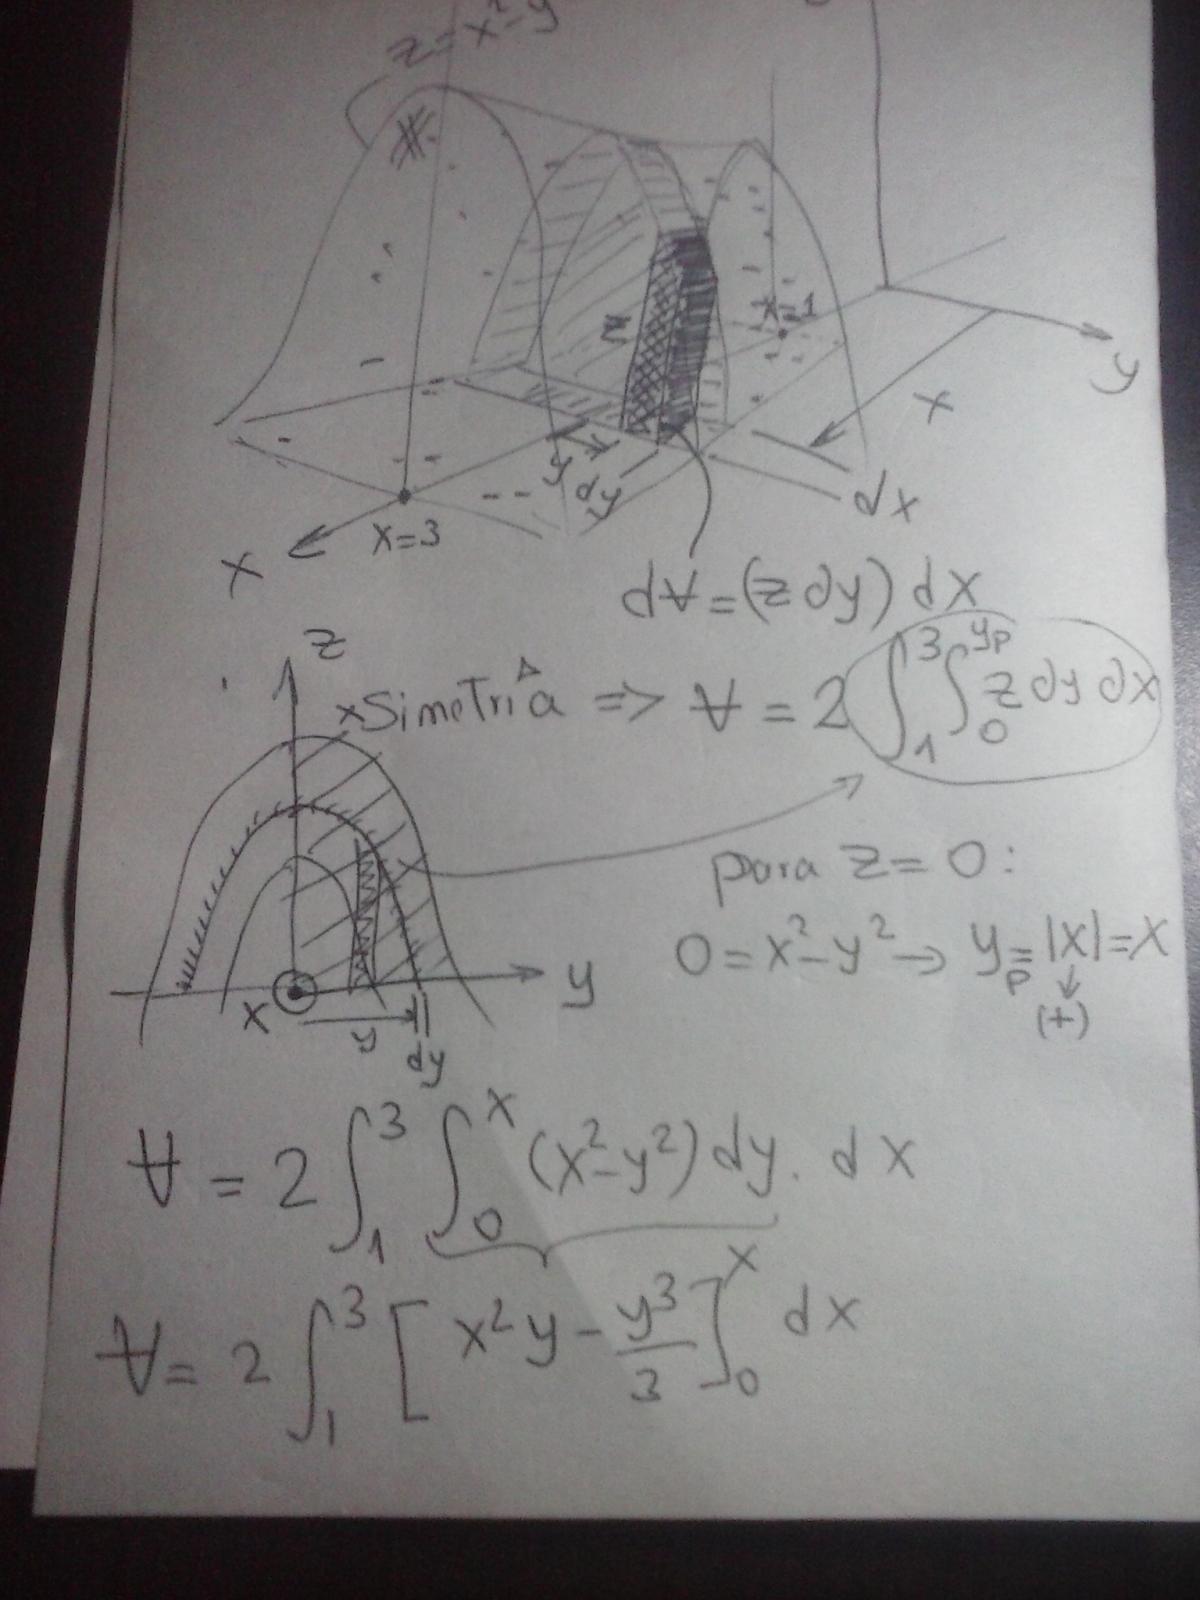 z=x²-y
x=1
y
x
z
y
dy
dx
x=3
x
dV=(z dy) dx
z
xSimetria => V = 2 ∫₁³ ∫₀^yp z dy dx
para z=0:
0=x²-y² → yp=|x|=x
(+)
y
x
y
dy
V = 2 ∫₁³ ∫₀ˣ (x²-y²) dy. dx
V= 2 ∫₁³ [x²y - y³/3]₀ˣ dx